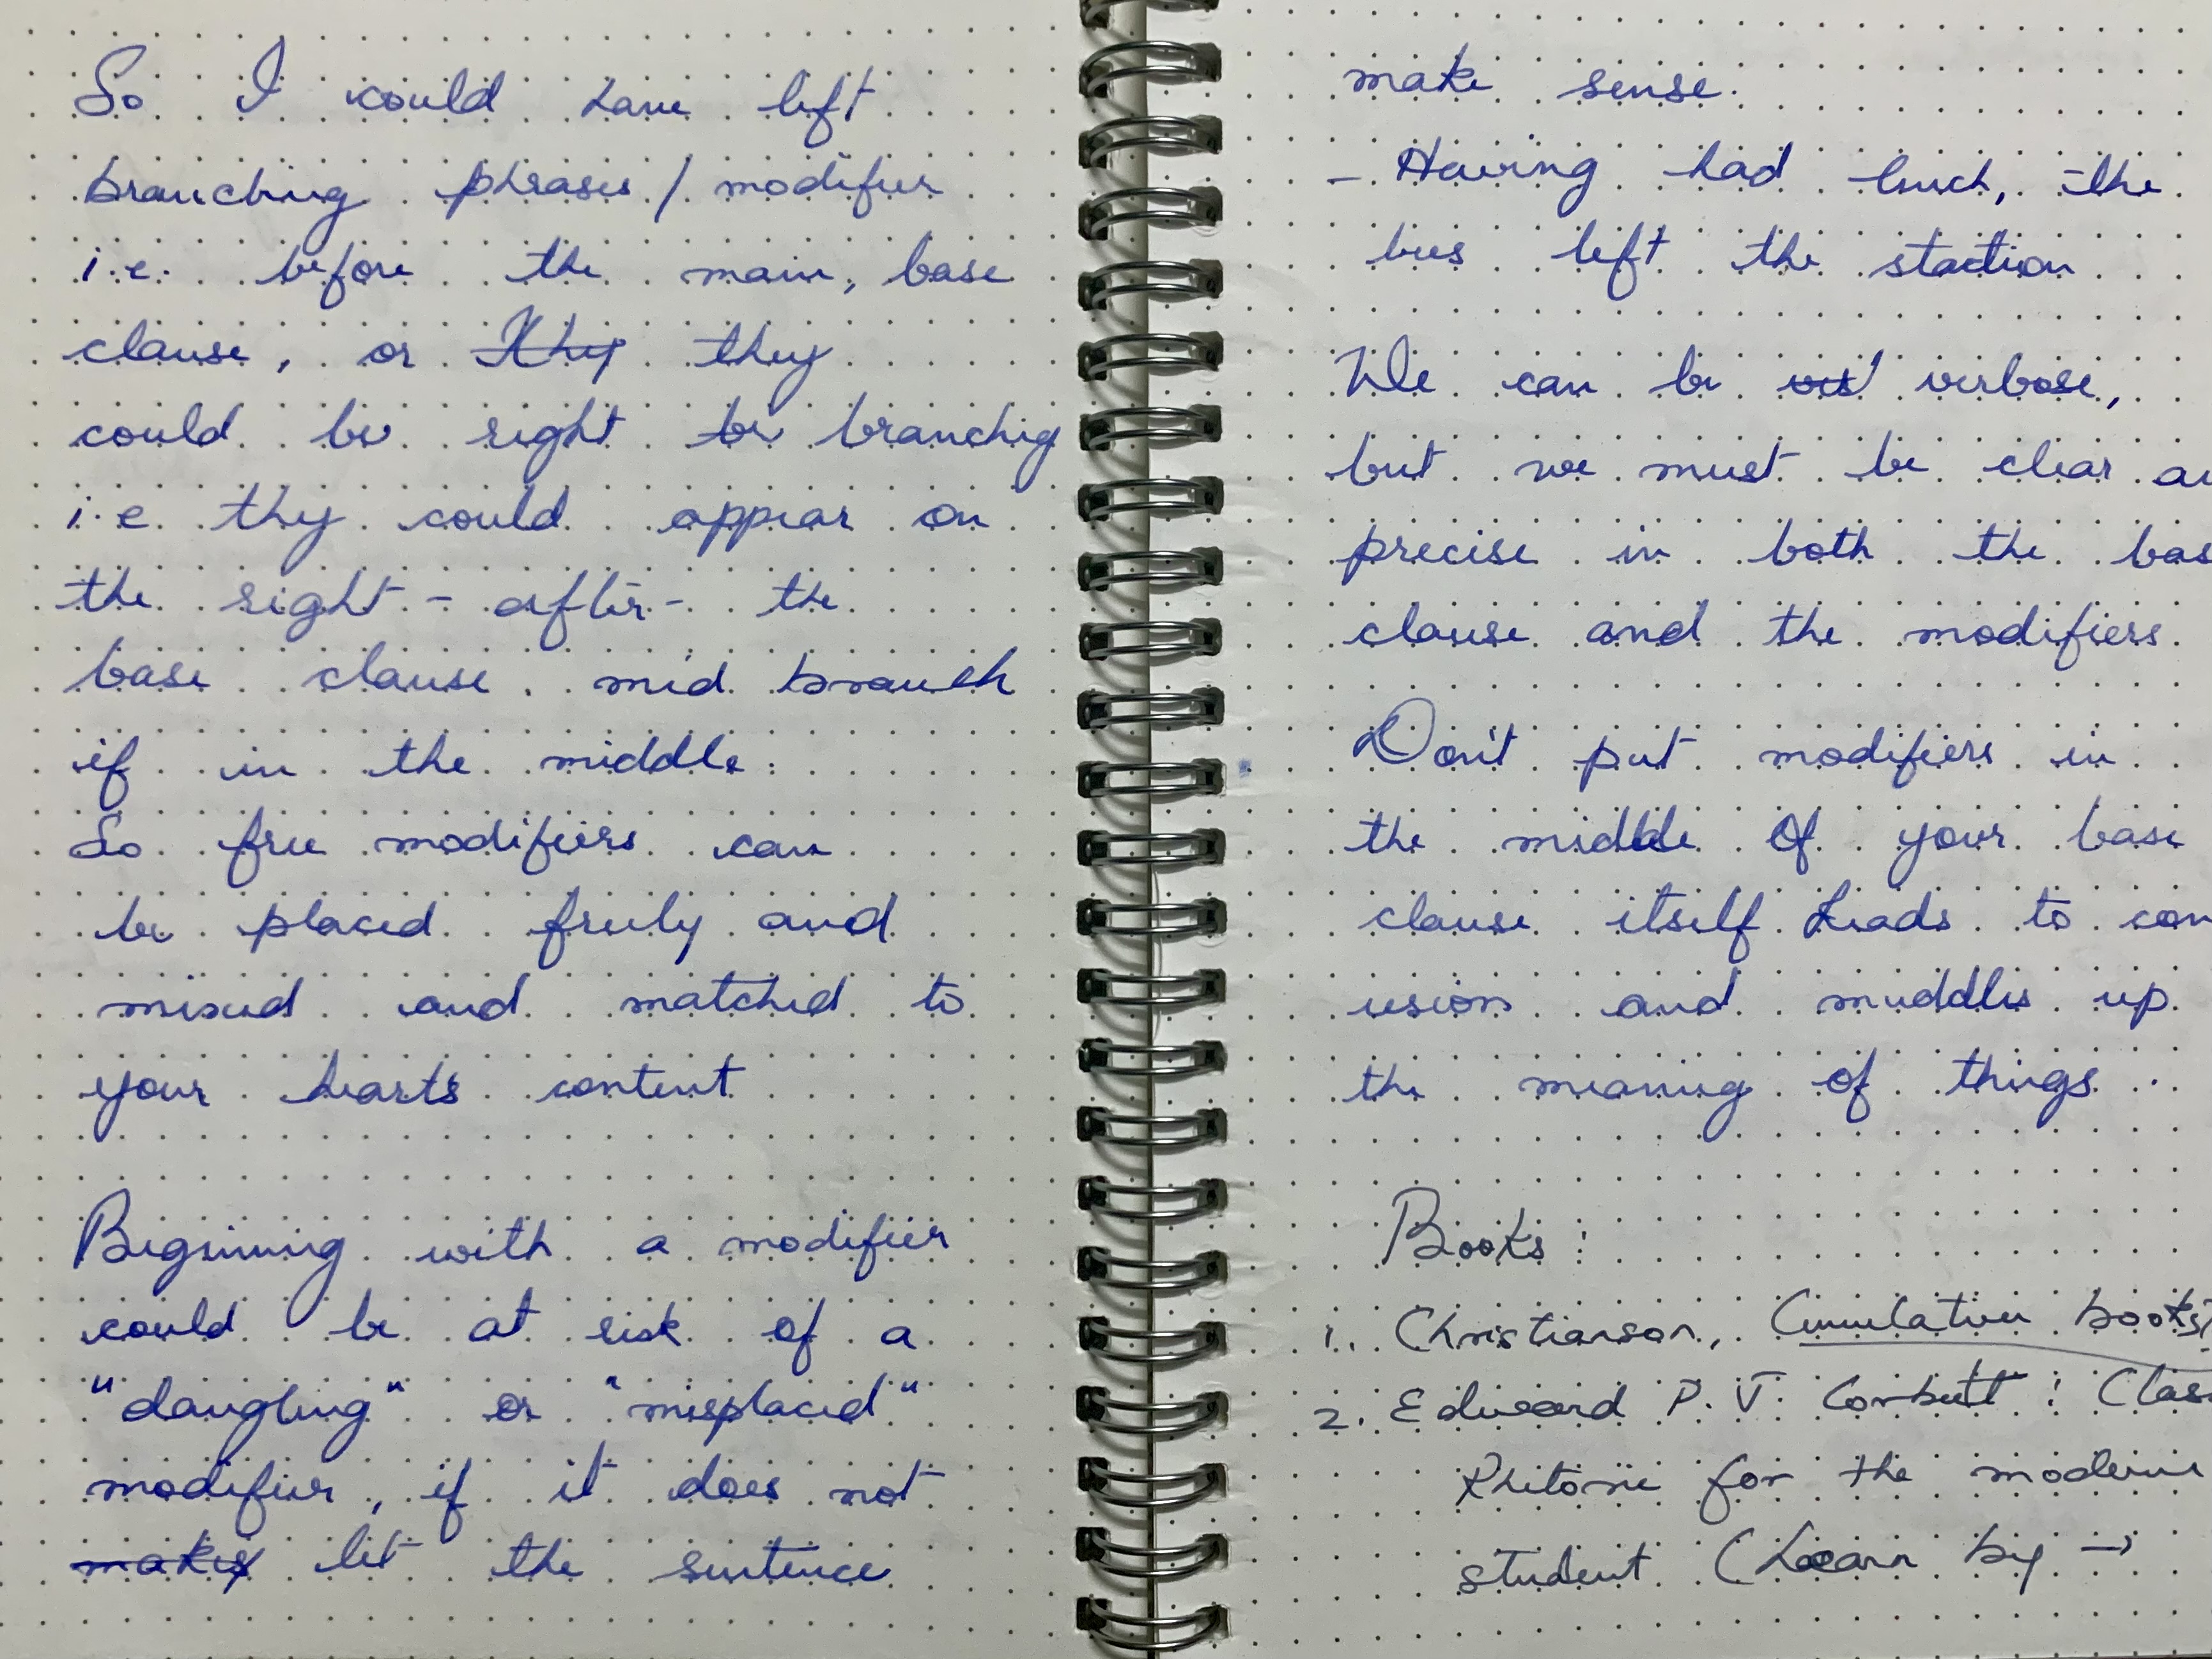 So I could have left
branching phrases / modifier
i.e. before the main, base
clause, or they they
could be right be branchig
i.e. they could appear on
the right - after - the
base clause. mid branch
if in the middle.
So free modifiers can
be placed freely and
mixed and matched to
your hearts content
Beginning with a modifier
could be at risk of a
"dangling" or "misplaced"
modifier, if it does not
makes let the sentence
make sense.
- Having had lunch, the
bus left the station
We can be verbose,
but we must be clear an
precise in both the bas
clause and the modifiers.
Don't put modifiers in
the middle of your base
clause itself leads to con
usion and muddles up
the meaning of things..
Books:
1. Christianson, Cumulative books
2. Edward P. J. Corbett: Clas
Rhetoric for the modern
student (Learn by →